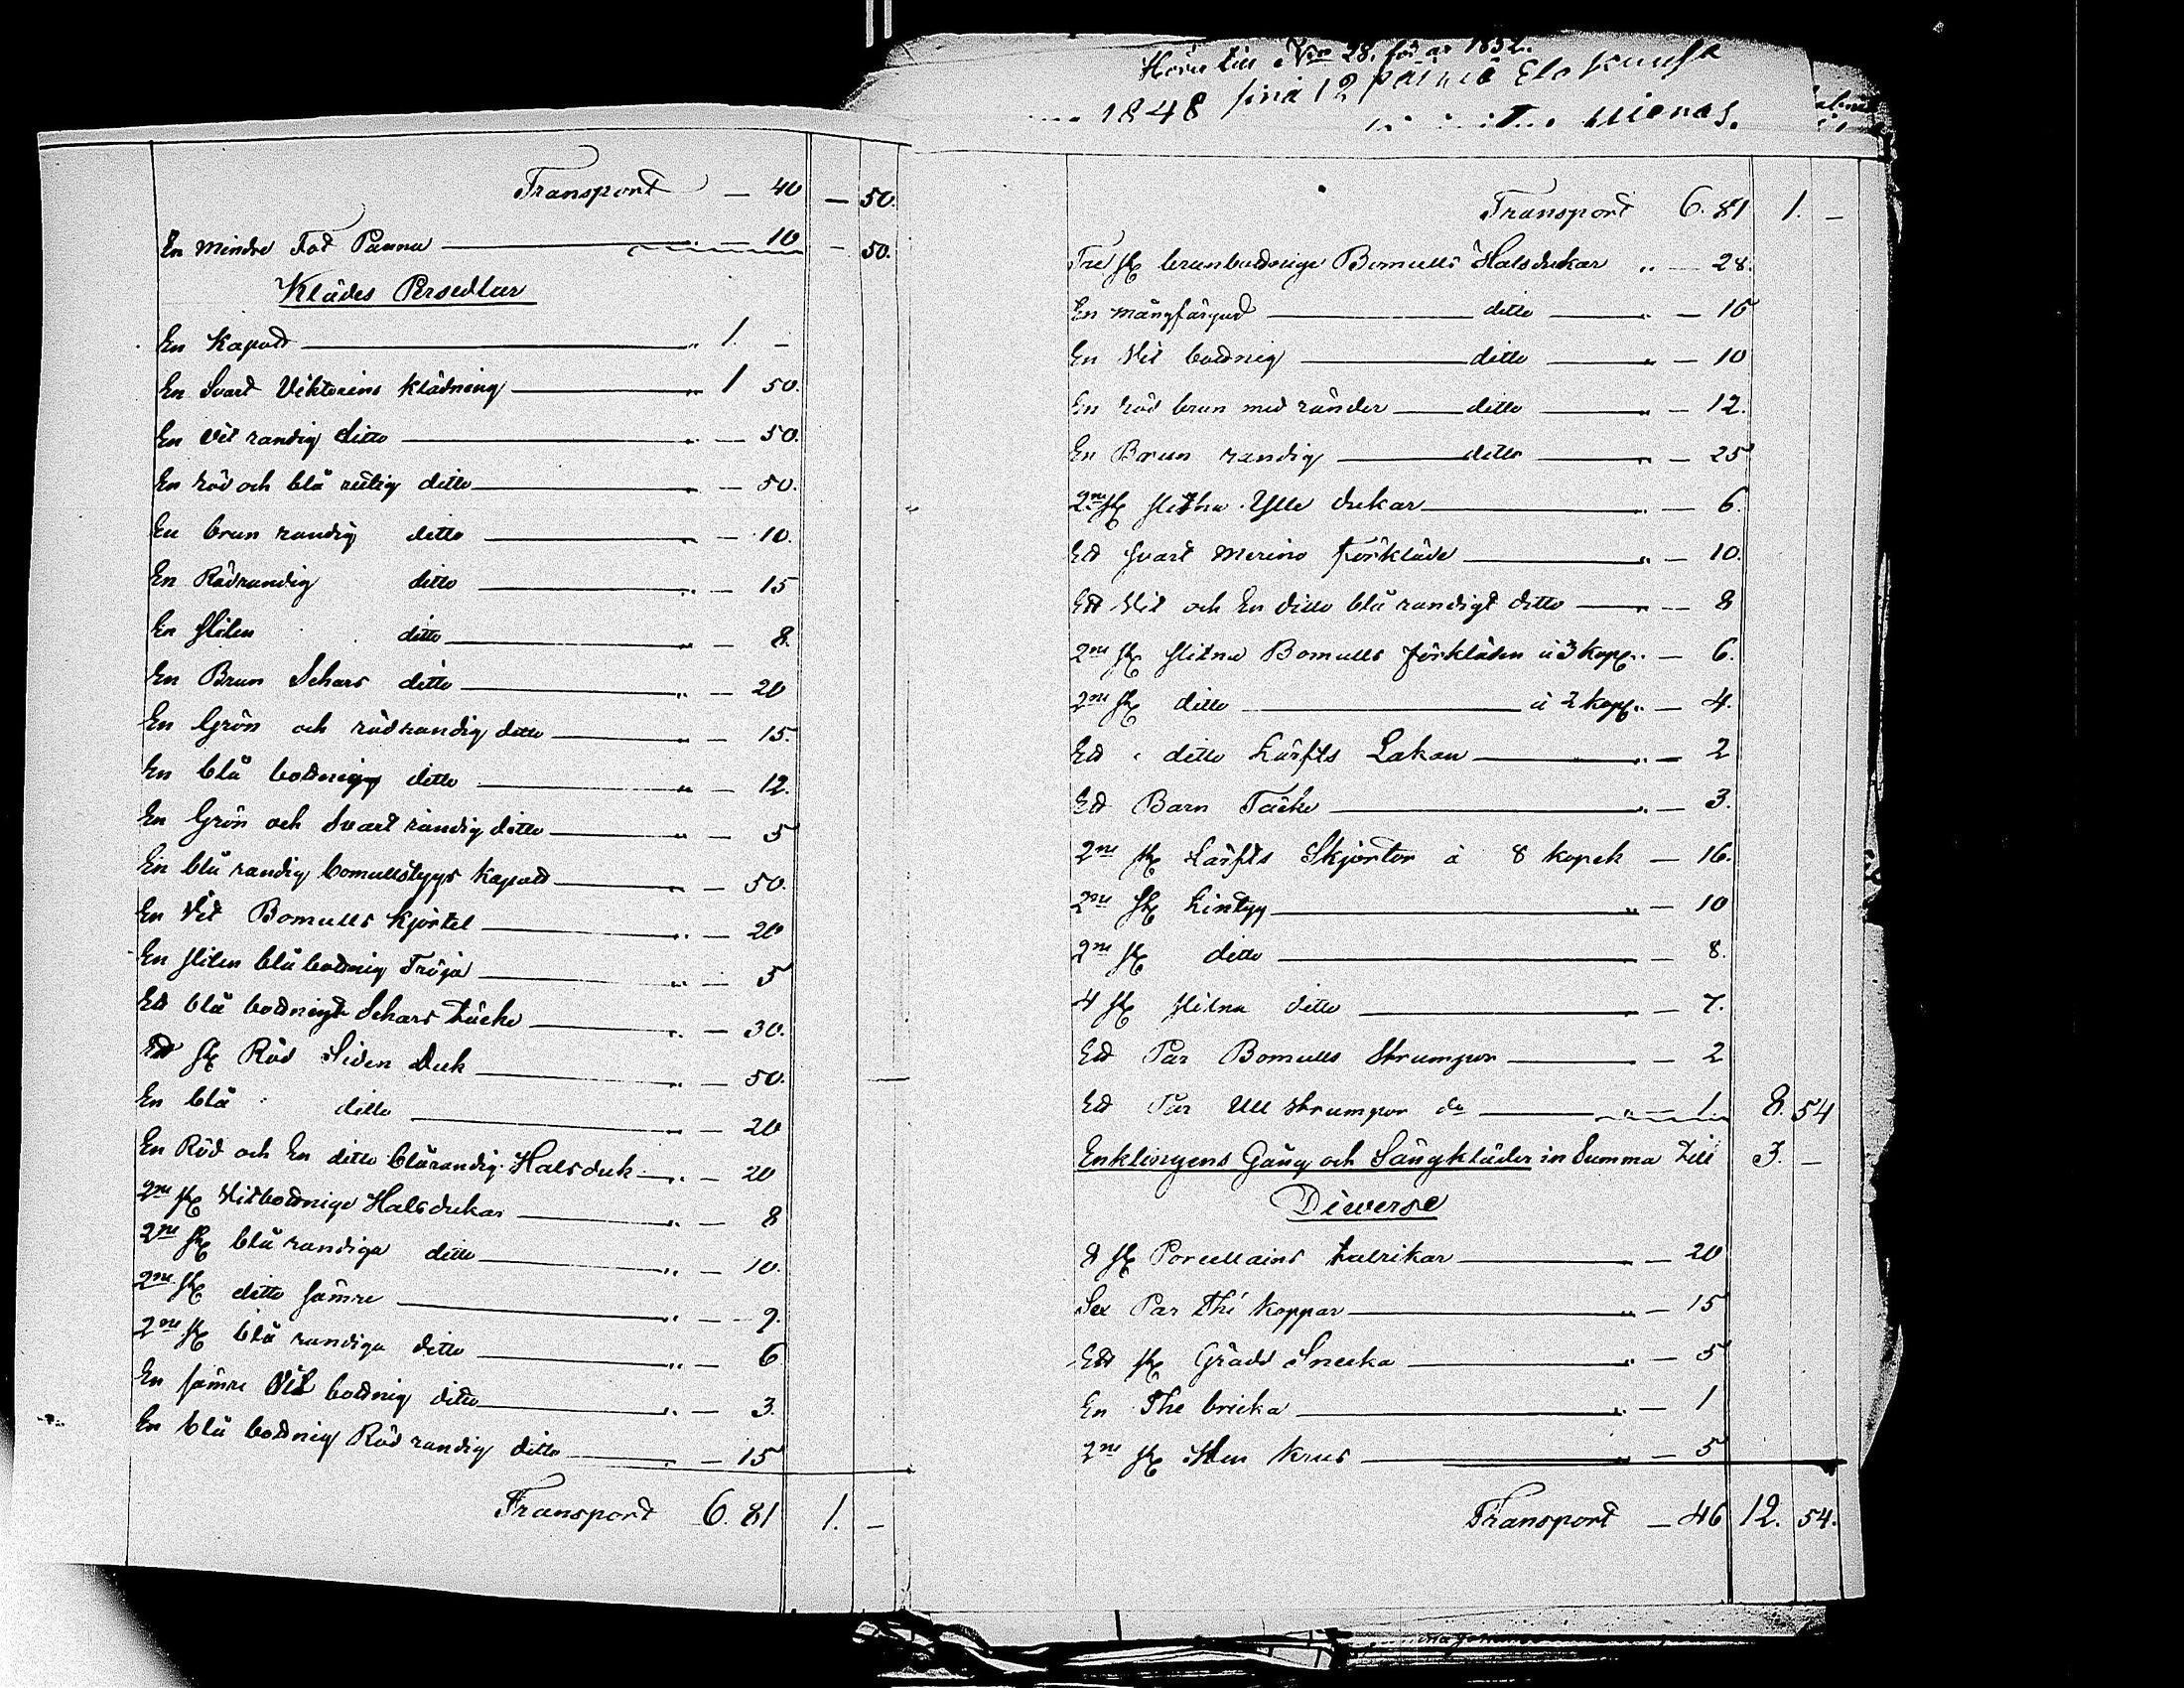 Transport — 40 — 50.
En mindre Fat Panna — 10 — 50.
Klädes Persedlar
En Kapott 1. —
En Svart Viktorins Klädning 1 50.
En Vit randig ditto — 50.
En röd och blå rutig ditto — 50.
En brun randig ditto — 10.
En Rödrandig ditto — 15
En sliten ditto — 8.
En Brun Schars ditto — 20
En Grön och rödrandig ditto — 15.
En blå bottnig ditto — 12.
En Grön och Svart randig ditto — 5
En blå randig bomullstygs Kapott — 50.
En Vit Bomulls Kjortel — 20
En sliten blå bottnig Tröja — 5
Ett blå bottnigt Schars täcke — 30.
Ett st Röd Siden Duk — 50.
En blå ditto — 20
En Röd och En ditto blårandig Halsduk — 20
2ne st Vitbottnige Halsdukar — 8
2ne st blå randiga ditto — 10.
2ne st ditto sämre — 9.
2ne st blå randiga ditto — 6
En sämre Vit bottnig ditto — 3.
En blå bottnig Röd randig ditto — 15
Transport 6. 81 1. —
Höru till No 28. för år 1852.
1848 12
Transport 6. 81 1. —
Tre st brunbottnige Bomulls Halsdukar — 28.
En mångfärgad ditto — 16
En Vit bottnig ditto — 10
En röd brun med ränder ditto — 12.
En Brun randig ditto — 25
2ne st slitna Ylle dukar — 6.
Ett svart Merino förkläde — 10.
Ett Vit och En ditto blå randigt ditto — 8
2ne st slitna Bomulls förkläden à 3 kop. — 6.
2ne st ditto à 2 kop. — 4.
Ett ditto Lärfts Lakan — 2
Ett Barn Täcke — 3.
2ne st Lärfts Skjortor à 8 kopek — 16.
2ne st Lintyg — 10
2ne st ditto — 8.
4 st slitna ditto — 7.
Ett Par Bomulls Strumpor — 2
Ett Par Ull strumpor do — 1. 8. 54
Enklingens Gång och Sängkläder in Summa Till 3. —
Diverse
8 st Porcellains tabrikar — 20
Sex Par The koppar — 15
Ett st Grädd Snecka — 5
En The bricka — 1
2ne st Sten Krus — 5
Transport — 46 12. 54.